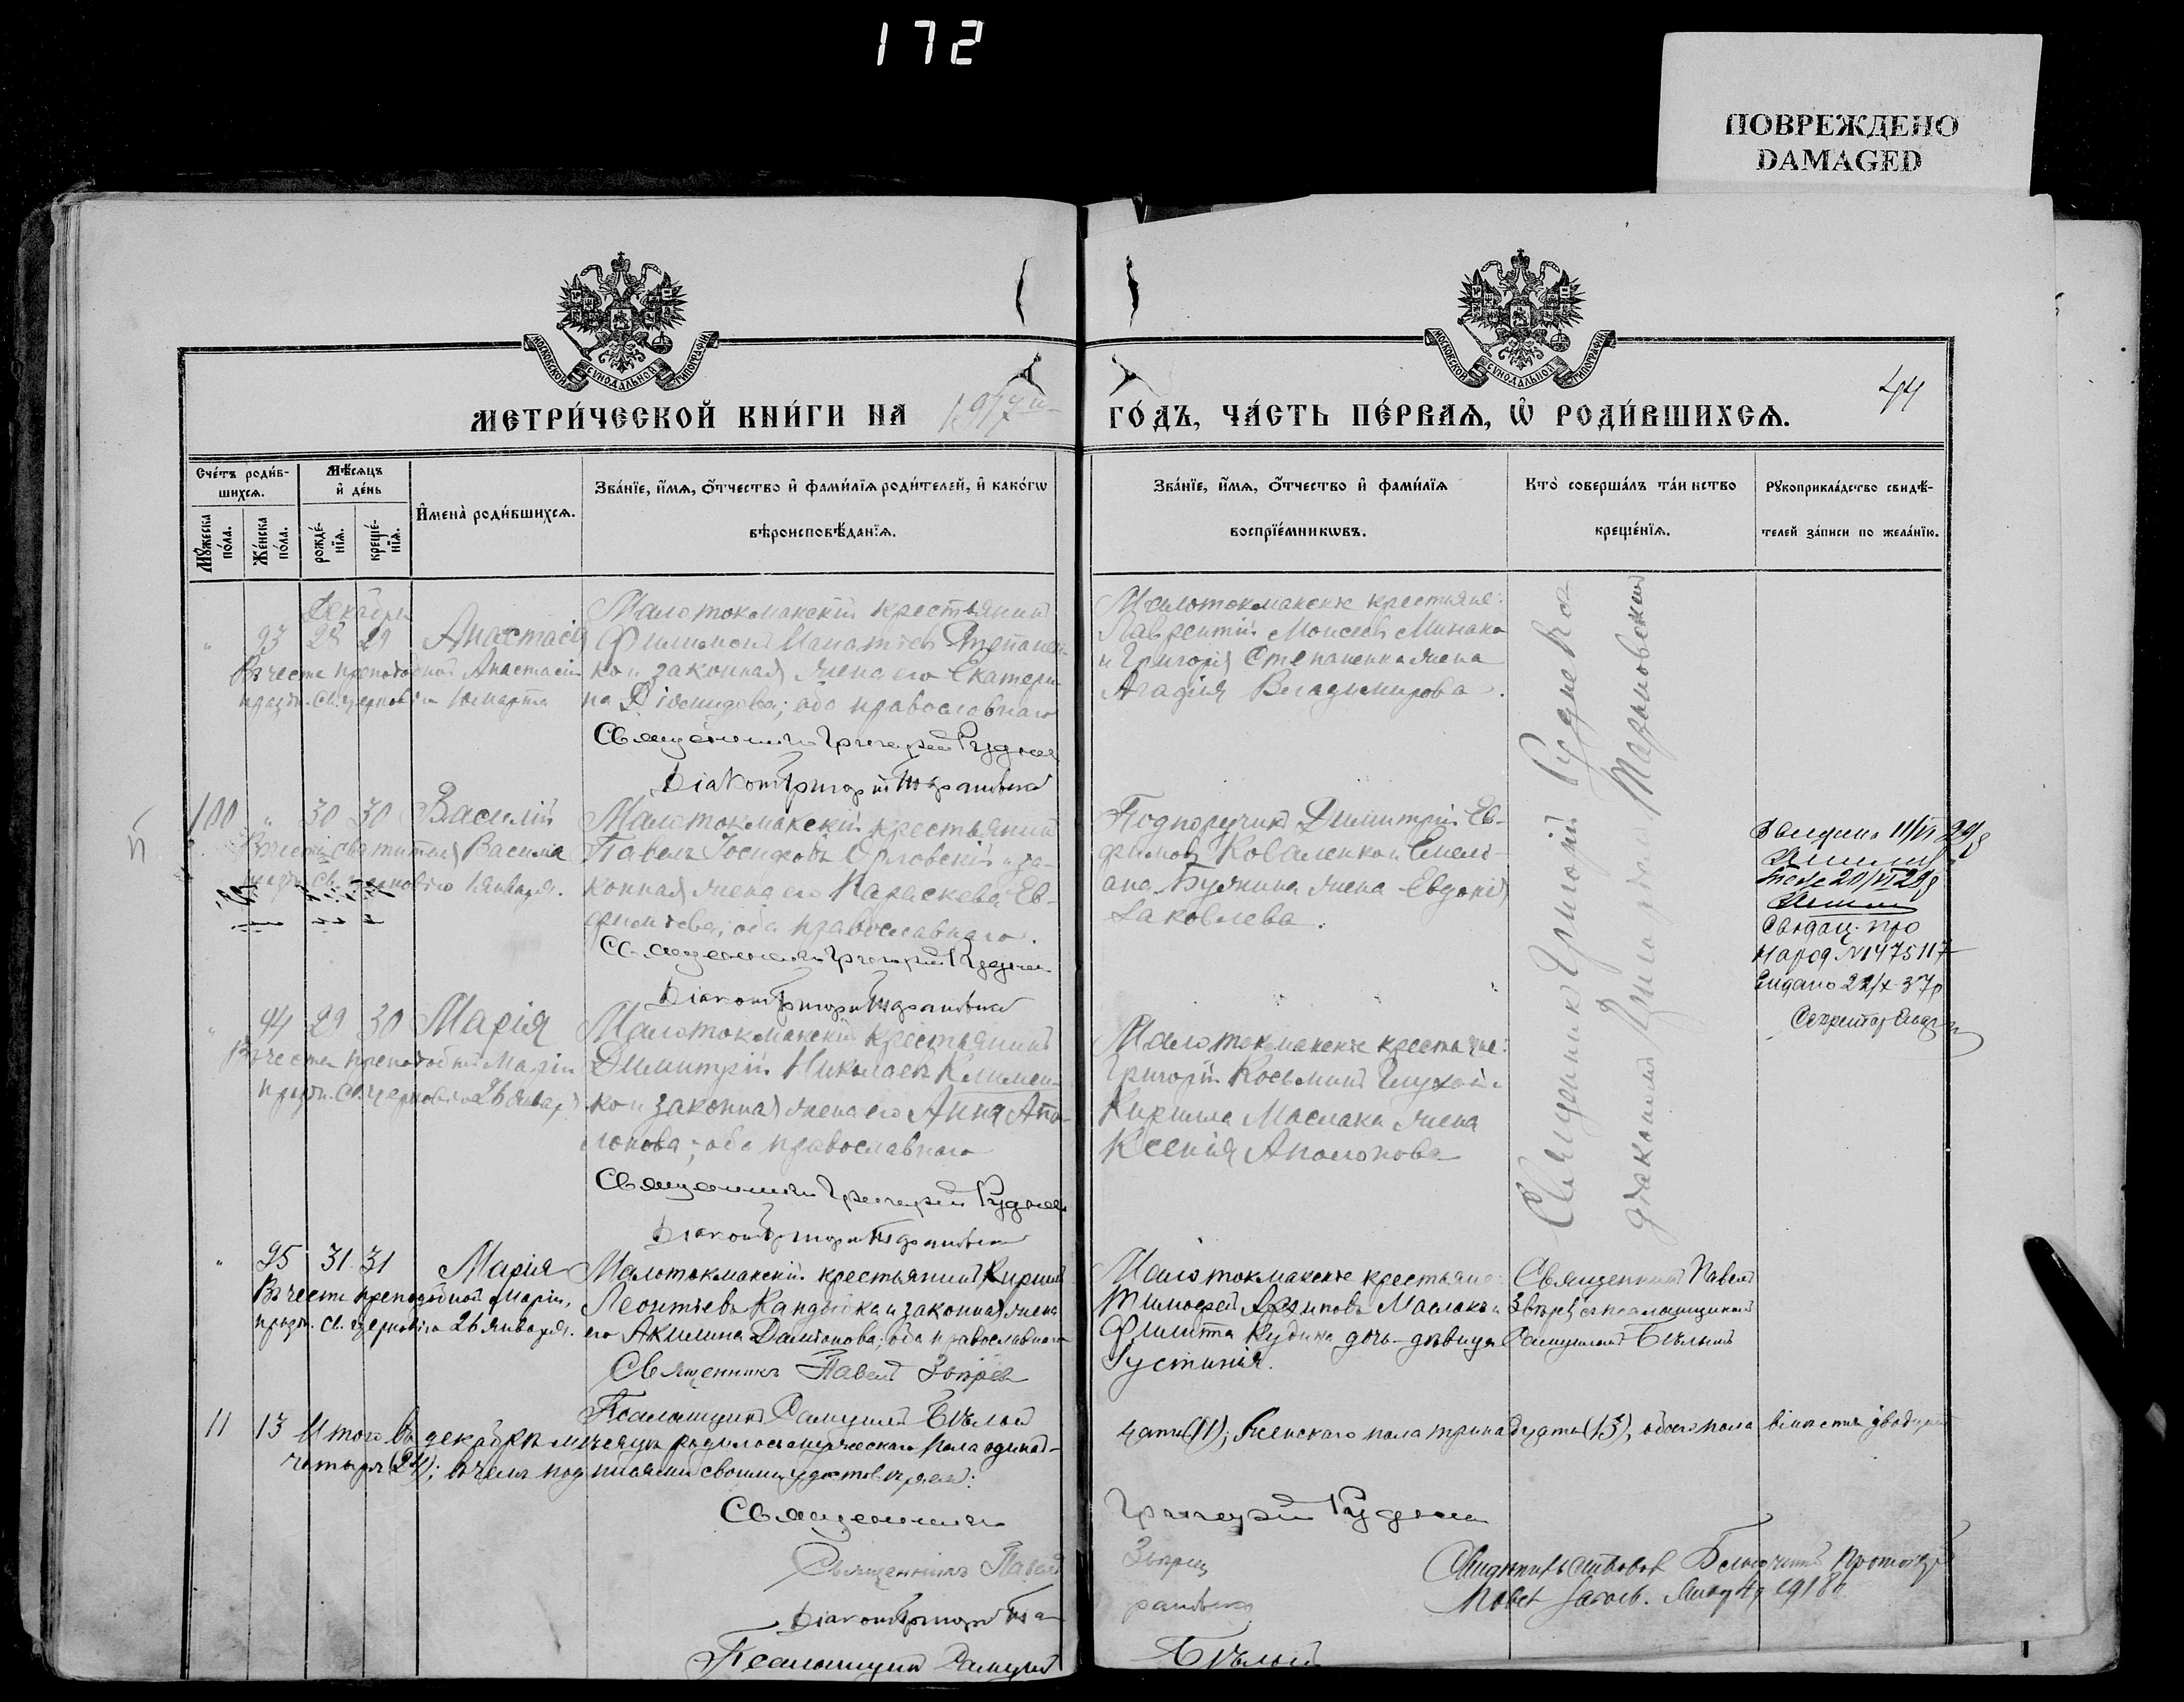 172
ПОВРЕЖДЕНО
DAMAGED
МОСКОВСКОЙ СѴНОДАЛЬНОЙ ТИПОГРАФІИ
МОСКОВСКОЙ СѴНОДАЛЬНОЙ ТИПОГРАФІИ
МЕТРИ́ЧЕСКОЙ КНИ́ГИ НА 1917
ГО́ДЪ, ЧА́СТЬ ПЕ́РВАѦ, Ѡ҆ РОДИ́ВШИХСѦ.
44
Сче́тъ роди́в-
шихсѧ.
Мѣ́сѧцъ
и҆ де́нь
Мꙋ́жеска
по́ла.
Же́нска
по́ла.
рожде́-
нїѧ.
креще́-
нїѧ.
И҆мена̀ роди́вшихсѧ.
Зва́нїе, и҆́мѧ, ѻ҆́тчество и҆ фами́лїѧ роди́телей, и҆ како́гѡ
вѣроисповѣ́данїѧ.
Зва́нїе, и҆́мѧ, ѻ҆́тчество и҆ фами́лїѧ
воспрїе́мникѡвъ.
Кто̀ соверша́лъ та́инство
креще́нїѧ.
Рꙋкоприкла́дство свидѣ́-
телей за́писи по жела́нїю.
Декабрь
93 28 29 Анастасія
Въ честь преподобной Анастасіи
Малотокмакскій крестьянинъ
Филимонъ Игнатіевъ Степанен-
ко и законная жена его Екатери-
на Діомидова; оба православнаго
Священникъ Григорій Руднев
Діаконъ Григорій Тарановскій
Малотокмакскіе крестьяне:
Лаврентій Моисеевъ Минако
и Григорія Степаненка жена
Агафія Владимирова.
100 " 30 30 Василій
Въ честь святителя Василія
празд. св. церковію 1 Января.
Малотокмакскій крестьянинъ
Павелъ Іосифовъ Орловскій и за-
конная жена его Параскева Ев-
фиміева; оба православнаго.
Священникъ Григорій Руднев
Діаконъ Григорій Тарановскій
Подпоручикъ Димитрій Ев-
фимовъ Коваленко и Емели-
ана жена Евдокія
Іаковлева.
11/VI 29
20/VI 29
про
народ № 1475117
Видано 22/X 37р
Секретар
" 94 29 30 Марія
Въ честь преподобной Маріи
празд. св. церковію 26 Января
Малотокмакскій крестьянинъ
Димитрій Николаевъ Климен-
ко и законная жена его Анна Апо-
лонова; оба православнаго
Священникъ Григорій Руднев
Діаконъ Григорій Тарановскій
Малотокмакскіе крестьяне:
Григорій Косьминъ Глухой и
Кирилла Маслака жена
Ксенія Аполонова
Священникъ Григорій Руднев съ
діакономъ Григоріемъ Тарановскимъ
" 95 31 31 Марія
Въ честь преподобной Маріи,
празд. св. церковію 26 января.
Малотокмакскій крестьянинъ Кириллъ
Леонтіевъ Кандыбка и законная жена
его Акилина Даміанова; оба православнаго
Священникъ Павелъ Звѣревъ
Псаломщикъ Самуилъ Бѣлый
Малотокмакскіе крестьяне:
Тимофей Архиповъ Маслакъ и
Филиппа Кудина дочь-дѣвица
Іустинія.
Священникъ Павелъ
Звѣревъ съ псаломщикомъ
Самуиломъ Бѣлымъ
11 13 Итого въ декабрѣ мѣсяцѣ родилось мужескаго пола одинад-
цать (11); женскаго пола тринадцать (13), обоего пола вмѣстѣ двадцать
четыре (24); въ чемъ подписями своими удостовѣряемъ:
Священникъ Григорій Руднев
Священникъ Павелъ Звѣревъ
Діаконъ Григорій Тарановскій
Псаломщикъ Самуилъ Бѣлый
1918